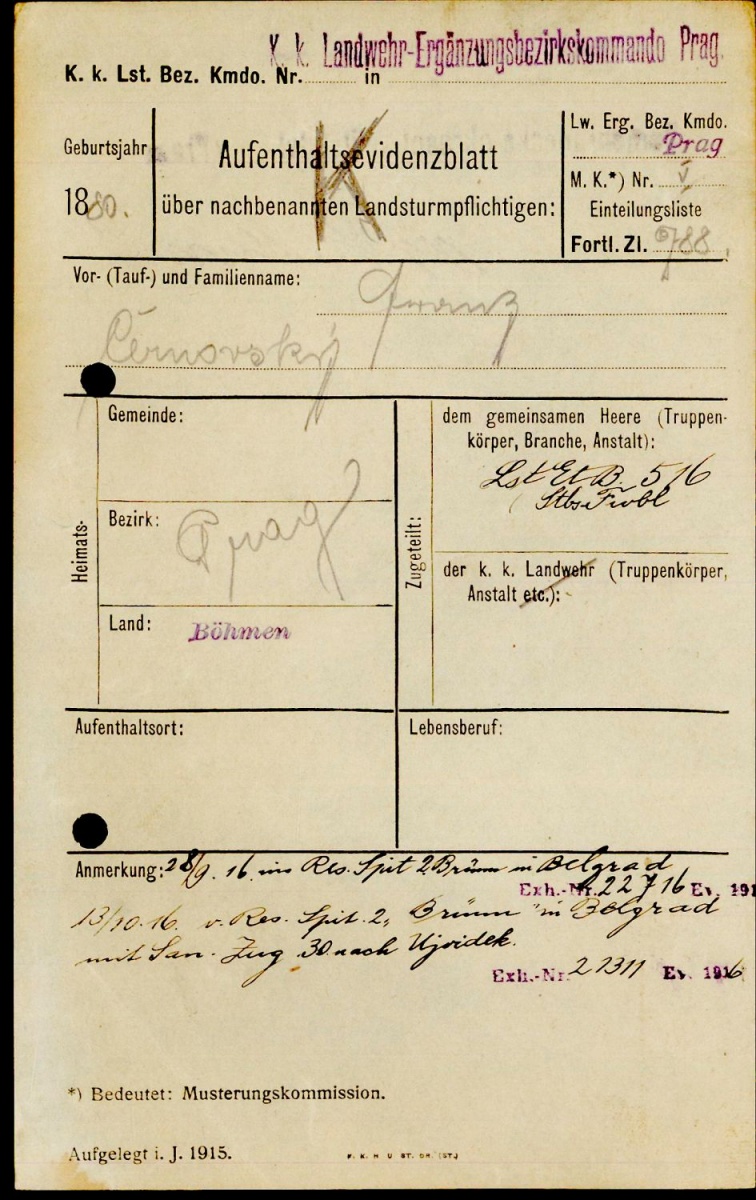 K. k. Landwehr-Ergänzungsbezirkskommando Prag.
K. k. Lst. Bez. Kmdo. Nr. in
Geburtsjahr
1880.
Aufenthaltsevidenzblatt
über nachbenannten Landsturmpflichtigen:
K
Lw. Erg. Bez. Kmdo.
Prag
M. K.*) Nr. V
Einteilungsliste
Fortl. Zl. 788
Vor- (Tauf-) und Familienname:
Franz
Černovský
Heimats-
Gemeinde:
Bezirk: Prag
Land: Böhmen
Zugeteilt:
dem gemeinsamen Heere (Truppen-
körper, Branche, Anstalt):
Lst Et B. 516
Stbs
der k. k. Landwehr (Truppenkörper,
Anstalt etc.):
Aufenthaltsort:
Lebensberuf:
Anmerkung: 28/9. 16. ins Res. Spit 2 Brünn in Belgrad
Exh.-Nr. 22716 Ev. 191
13/10. 16. v. Res. Spit. 2 „Brünn" in Belgrad
mit San. Zug 30 nach Ujvidek.
Exh.-Nr. Ev. 1916
*) Bedeutet: Musterungskommission.
Aufgelegt i. J. 1915.
F. K. H U ST. DR. (ST.)